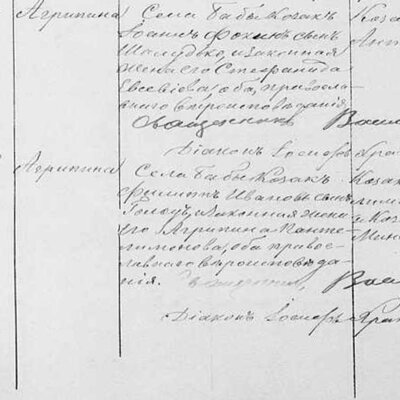 Агрипина
Села Бабы Козакъ
Іоаннъ Фокинъ сынъ
и законная
жена его Стефанида
Евсевіева, оба, правосла-
внаго вѣроисповѣданія
Священникъ
Діаконъ Іосифъ
Каза
Агрипина
Села Бабы Козакъ
Филиппъ Ивановъ сынъ
законная жена
его Агрипина Панте-
лимонова, оба право-
славнаго вѣроисповѣда-
нія. Священникъ
Діаконъ Іосифъ
Каза